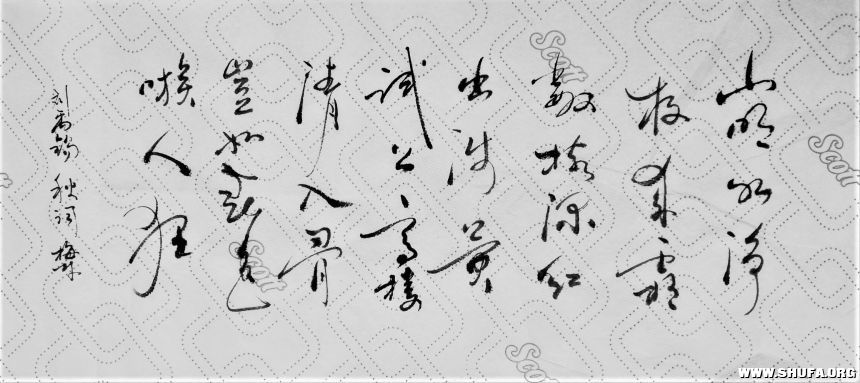 山明水净
夜来霜
数树深红
出浅黄
试上高楼
清入骨
豈如春色
嗾人狂
刘禹锡 秋词
Scott
Scott
Scott
Scott
WWW.SHUFA.ORG